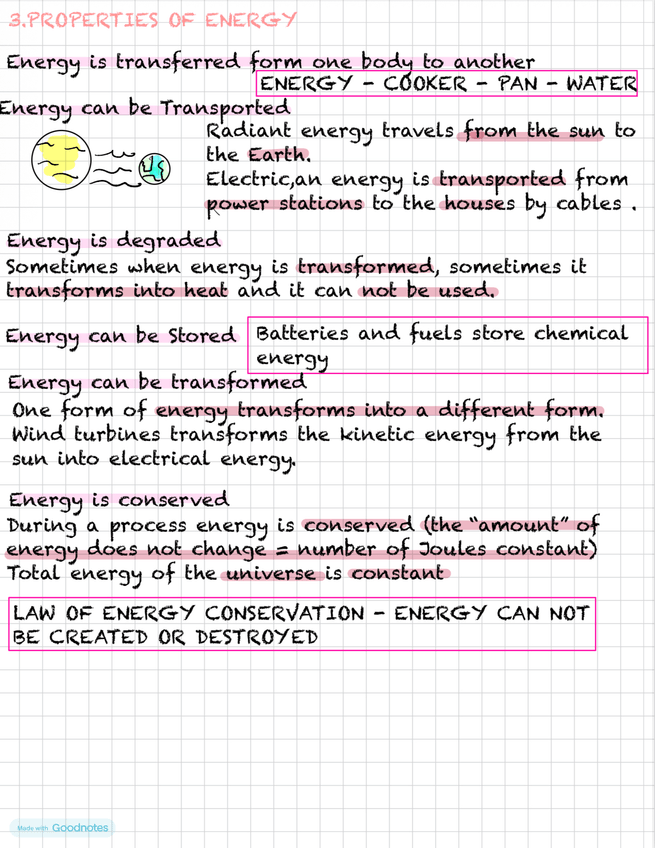 3.PROPERTIES OF ENERGY
Energy is transferred form one body to another
ENERGY - COOKER - PAN - WATER
Energy can be Transported
Radiant energy travels from the sun to
the Earth.
Electric,an energy is transported from
power stations to the houses by cables .
Energy is degraded
Sometimes when energy is transformed, sometimes it
transforms into heat and it can not be used.
Energy can be Stored
Batteries and fuels store chemical
energy
Energy can be transformed
One form of energy transforms into a different form.
Wind turbines transforms the kinetic energy from the
sun into electrical energy.
Energy is conserved
During a process energy is conserved (the "amount" of
energy does not change = number of Joules constant)
Total energy of the universe is constant
LAW OF ENERGY CONSERVATION - ENERGY CAN NOT
BE CREATED OR DESTROYED
Made with Goodnotes